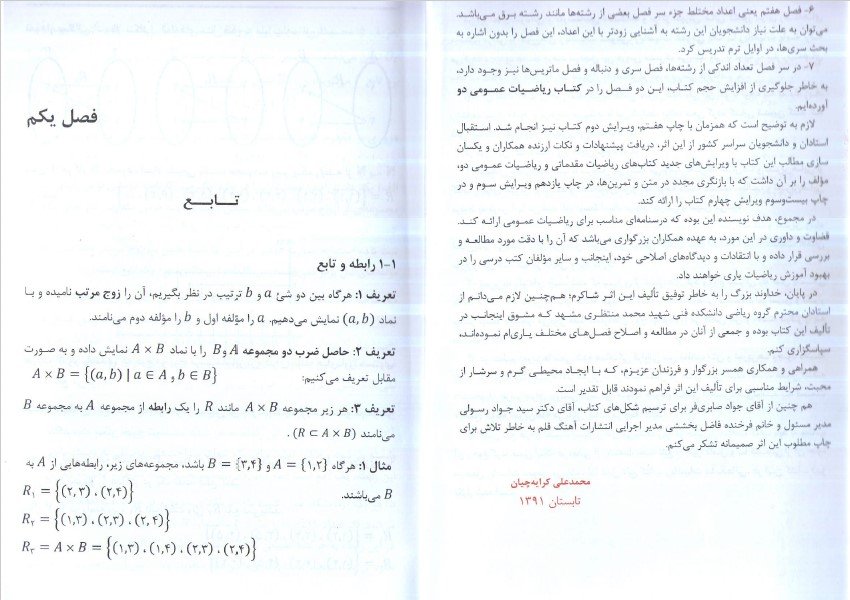 ۶- فصل هفتم یعنی اعداد مختلط جزء سر فصل بعضی از رشته‌ها مانند رشته برق می‌باشد.
می‌توان به علت نیاز دانشجویان این رشته به آشنایی زودتر با این اعداد، این فصل را بدون اشاره به
بحث سری‌ها، در اوایل ترم تدریس کرد.
۷- در سر فصل تعداد اندکی از رشته‌ها، فصل سری و دنباله و فصل ماتریس‌ها نیز وجود دارد،
به خاطر جلوگیری از افزایش حجم کتاب، این دو فصل را در کتاب ریاضیات عمومی دو
آورده‌ایم.
لازم به توضیح است که همزمان با چاپ هفتم، ویرایش دوم کتاب نیز انجام شد. استقبال
استادان و دانشجویان سراسر کشور از این اثر، دریافت پیشنهادات و نکات ارزنده همکاران و یکسان
سازی مطالب این کتاب با ویرایش‌های جدید کتاب‌های ریاضیات مقدماتی و ریاضیات عمومی دو،
مؤلف را بر آن داشت که با بازنگری مجدد در متن و تمرین‌ها، در چاپ یازدهم ویرایش سوم و در
چاپ بیست‌وسوم ویرایش چهارم کتاب را ارائه کند.
در مجموع، هدف نویسنده این بوده که درسنامه‌ای مناسب برای ریاضیات عمومی ارائه کند.
قضاوت و داوری در این مورد، به عهده همکاران بزرگواری می‌باشد که آن را با دقت مورد مطالعه و
بررسی قرار داده و با انتقادات و دیدگاه‌های اصلاحی خود، اینجانب و سایر مؤلفان کتب درسی را در
بهبود آموزش ریاضیات یاری خواهند داد.
در پایان، خداوند بزرگ را به خاطر توفیق تألیف این اثر شاکرم؛ هم‌چنین لازم می‌دانم از
استادان محترم گروه ریاضی دانشکده فنی شهید محمد منتظری مشهد که مشوق اینجانب در
تألیف این کتاب بوده و جمعی از آنان در مطالعه و اصلاح فصل‌های مختلف یاری‌ام نموده‌اند،
سپاسگزاری کنم.
همراهی و همکاری همسر بزرگوار و فرزندان عزیزم، که با ایجاد محیطی گرم و سرشار از
محبت، شرایط مناسبی برای تألیف این اثر فراهم نمودند قابل تقدیر است.
هم چنین از آقای جواد صابری‌فر برای ترسیم شکل‌های کتاب، آقای دکتر سید جواد رسولی
مدیر مسئول و خانم فرخنده فاضل بخششی مدیر اجرایی انتشارات آهنگ قلم به خاطر تلاش برای
چاپ مطلوب این اثر صمیمانه تشکر می‌کنم.
محمدعلی کرایه‌چیان
تابستان ۱۳۹۱
فصل یکم
تـــابـــع
۱-۱ رابطه و تابع
تعریف ۱: هرگاه بین دو شئ a و b ترتیب در نظر بگیریم، آن را زوج مرتب نامیده و با
نماد (a, b) نمایش می‌دهیم. a را مؤلفه اول و b را مؤلفه دوم می‌نامند.
تعریف ۲: حاصل ضرب دو مجموعه A و B را با نماد A × B نمایش داده و به صورت
مقابل تعریف می‌کنیم: A × B = {(a, b) | a ∈ A و b ∈ B}
تعریف ۳: هر زیر مجموعه A × B مانند R را یک رابطه از مجموعه A به مجموعه B
می‌نامند (R ⊂ A × B).
مثال ۱: هرگاه A = {۱,۲} و B = {۳,۴} باشد، مجموعه‌های زیر، رابطه‌هایی از A به
B می‌باشند. R₁ = {(۲,۳) , (۲,۴)}
R₂ = {(۱,۳) , (۲,۳) , (۲,۴)}
R₃ = A × B = {(۱,۳) , (۱,۴) , (۲,۳) , (۲,۴)}